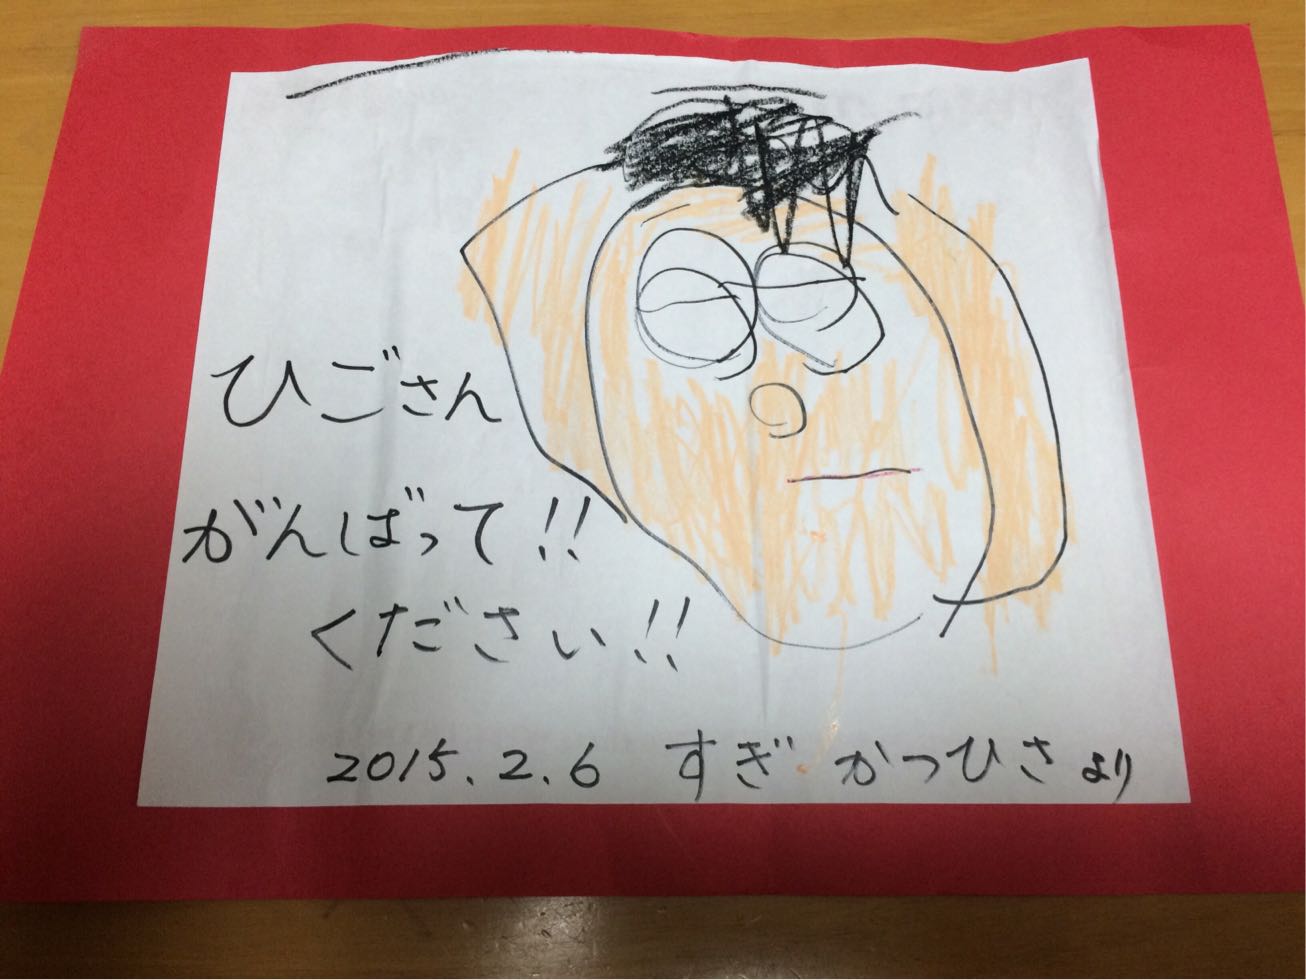 ひごさん
がんばって!!
ください!!
2015.2.6 すぎ かつひさ より